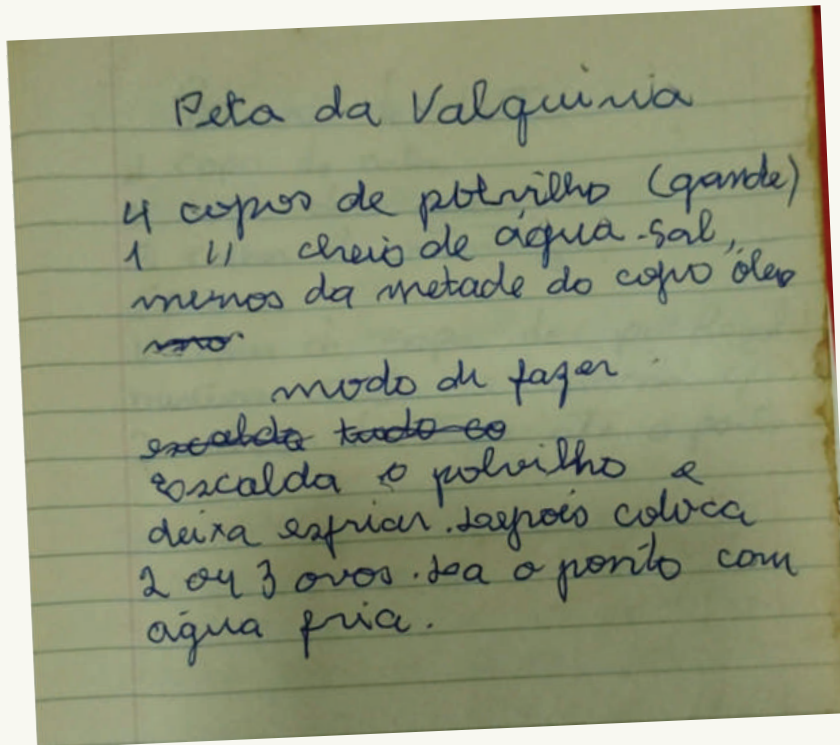 Peta da Valquiria
4 copos de polvilho (grande)
1 11 cheio de água. sal,
menos da metade do copo óleo
modo de fazer
escalda tudo co
Escalda o polvilho e
deixa esfriar. Depois coloca
2 ou 3 ovos. Dea o ponto com
água fria.